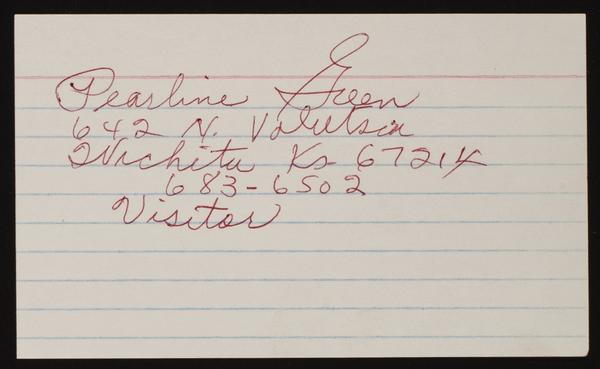 Pearline Green
642 N. Volutsia
Wichita Ks 67214
683-6502
Visitor